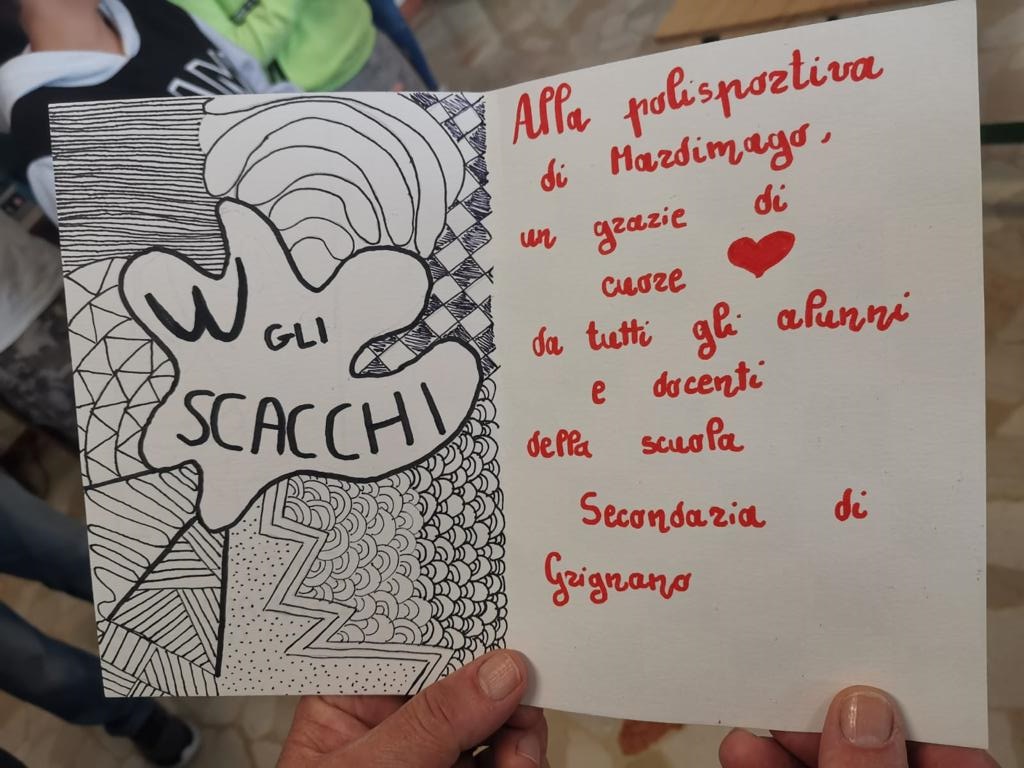 W
GLI
SCACCHI
Alla polisportiva
di Mardimago,
un grazie di
cuore
da tutti gli alunni
e docenti
della scuola
Secondaria di
Grignano